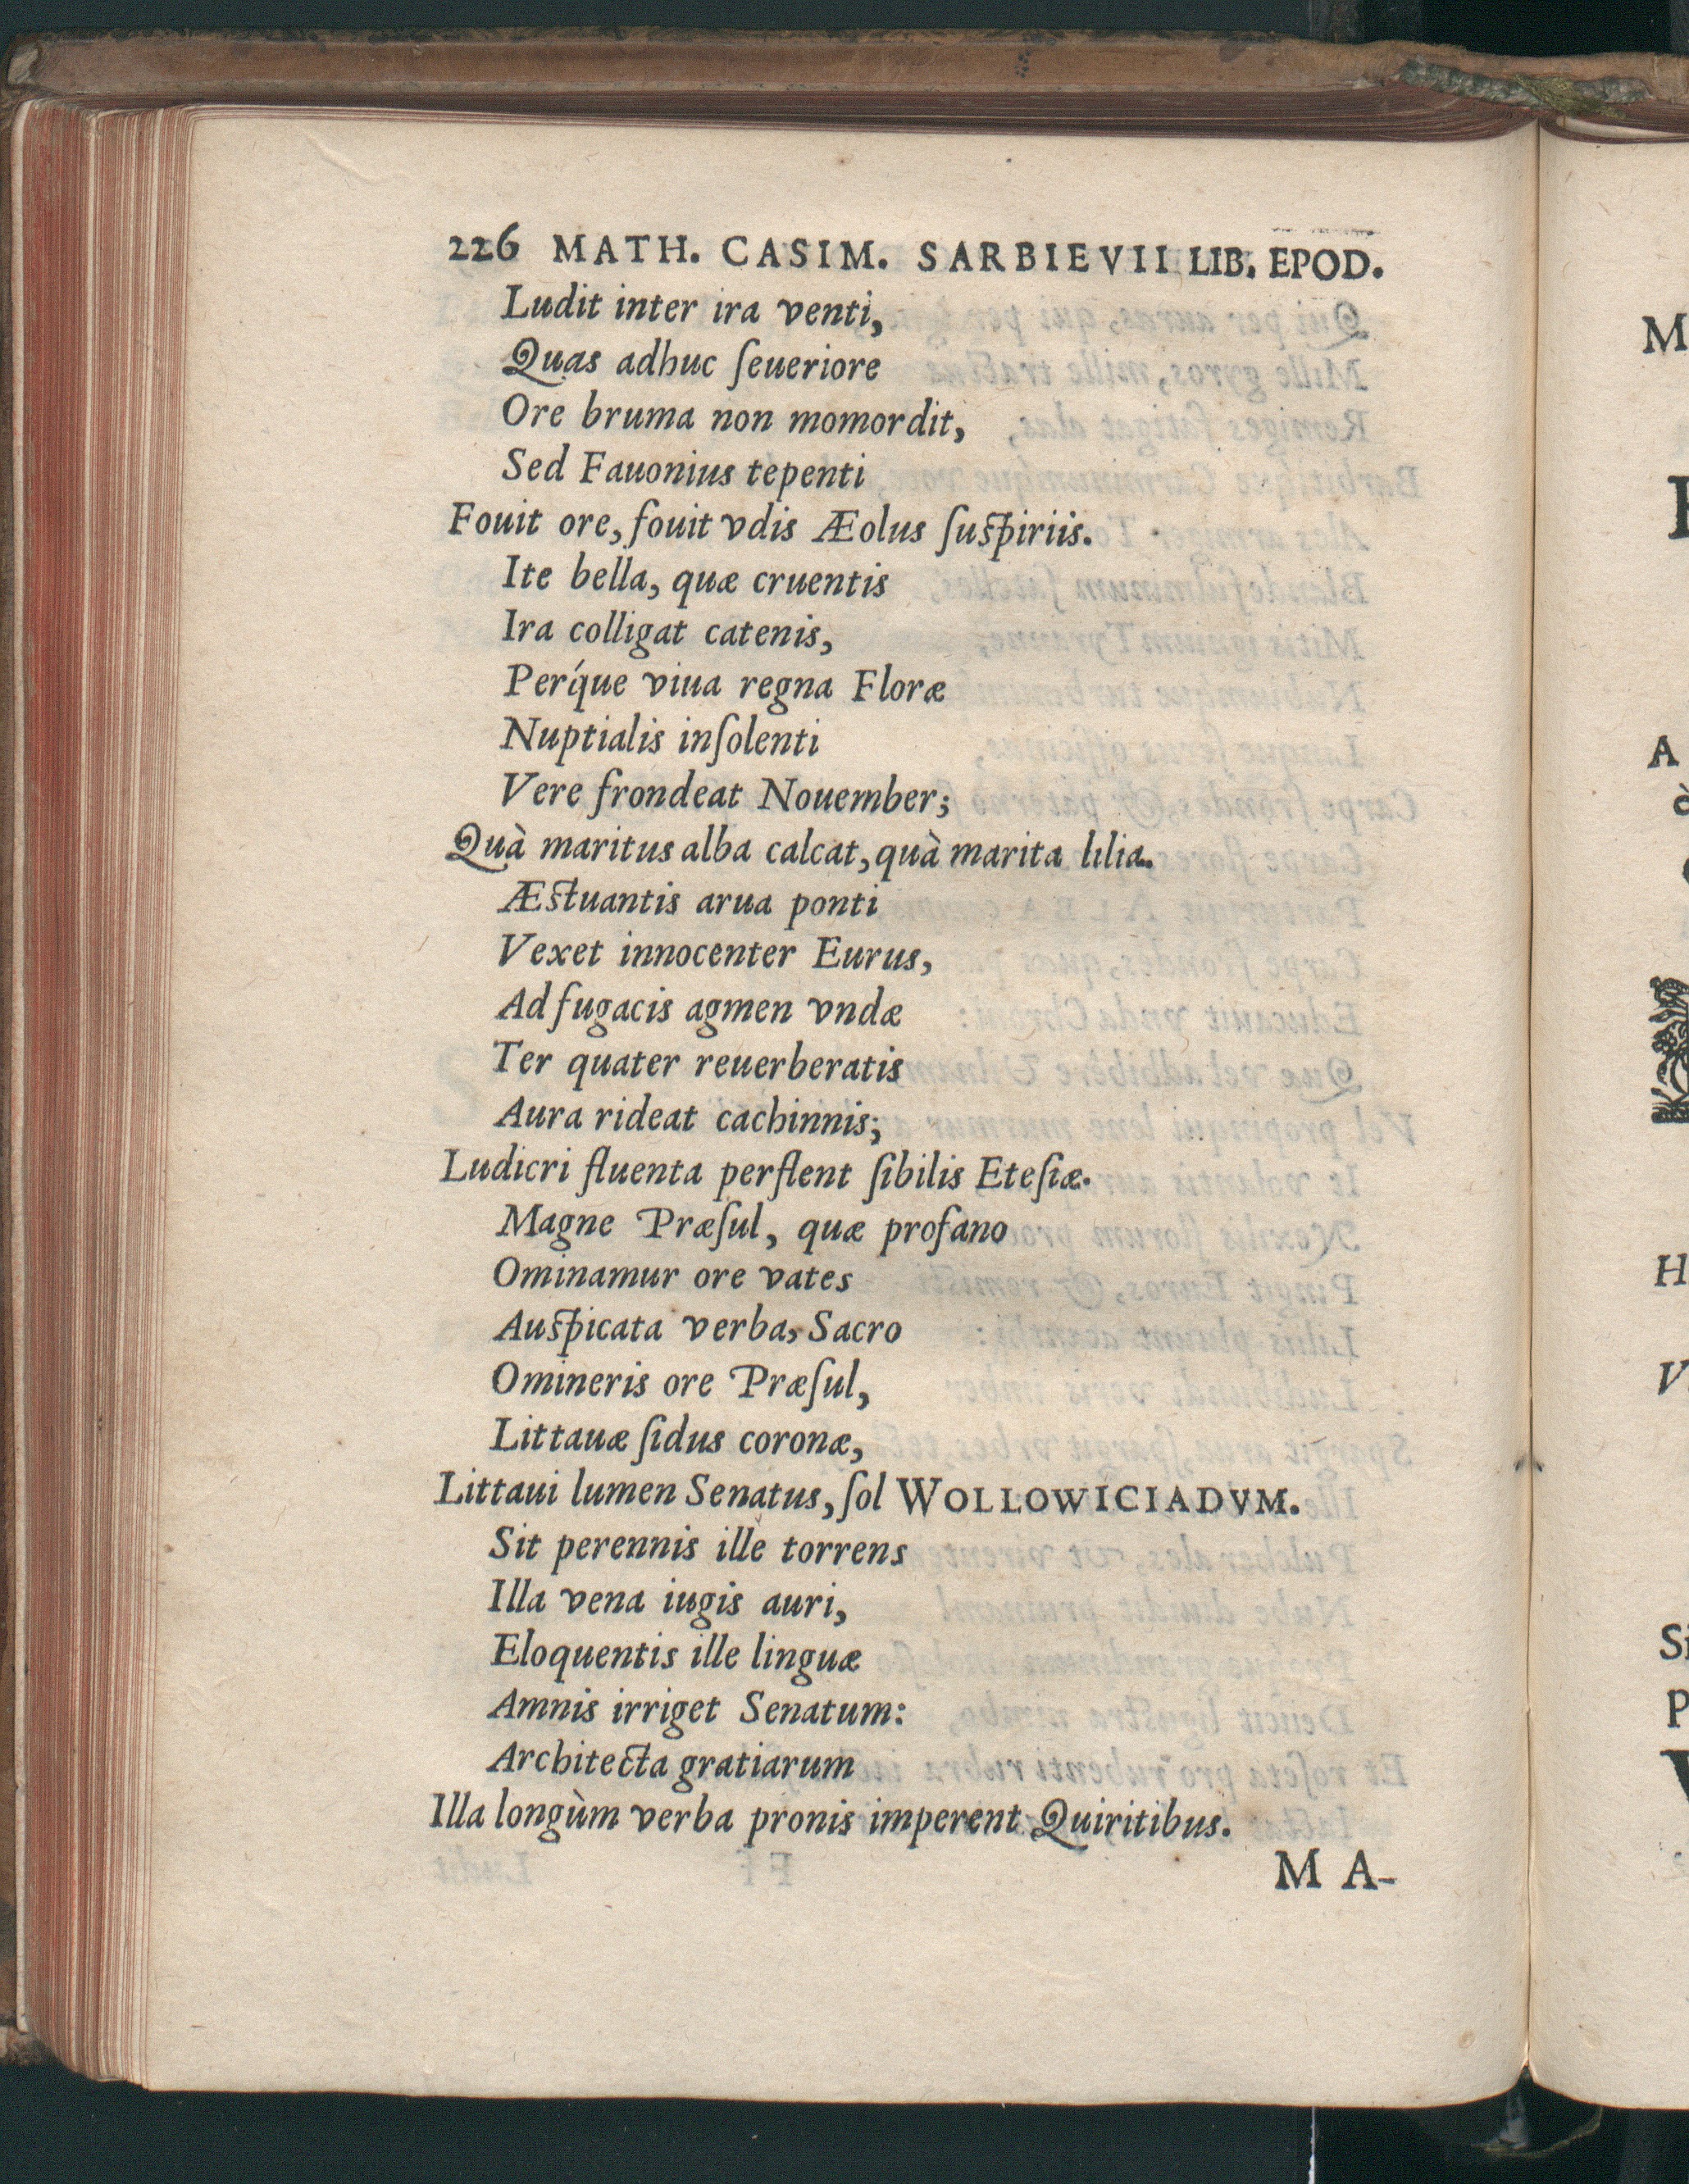 226 MATH. CASIM. SARBIEVII LIB. EPOD.
Ludit inter ira venti,
Quas adhuc ſeueriore
Ore bruma non momordit,
Sed Fauonius tepenti
Fouit ore, fouit vdis Æolus ſuſpiriis.
Ite bella, quæ cruentis
Ira colligat catenis,
Perq́ue viua regna Floræ
Nuptialis inſolenti
Vere frondeat Nouember;
Quà maritus alba calcat, quà marita lilia.
Æſtuantis arua ponti
Vexet innocenter Eurus,
Ad fugacis agmen vndæ
Ter quater reuerberatis
Aura rideat cachinnis;
Ludicri fluenta perflent ſibilis Eteſiæ.
Magne Præſul, quæ profano
Ominamur ore vates
Auſpicata verba, Sacro
Omineris ore Præſul,
Littauæ ſidus coronæ,
Littaui lumen Senatus, ſol WOLLOWICIADVM.
Sit perennis ille torrens
Illa vena iugis auri,
Eloquentis ille linguæ
Amnis irriget Senatum:
Architecta gratiarum
Illa longùm verba pronis imperent Quiritibus.
M A-